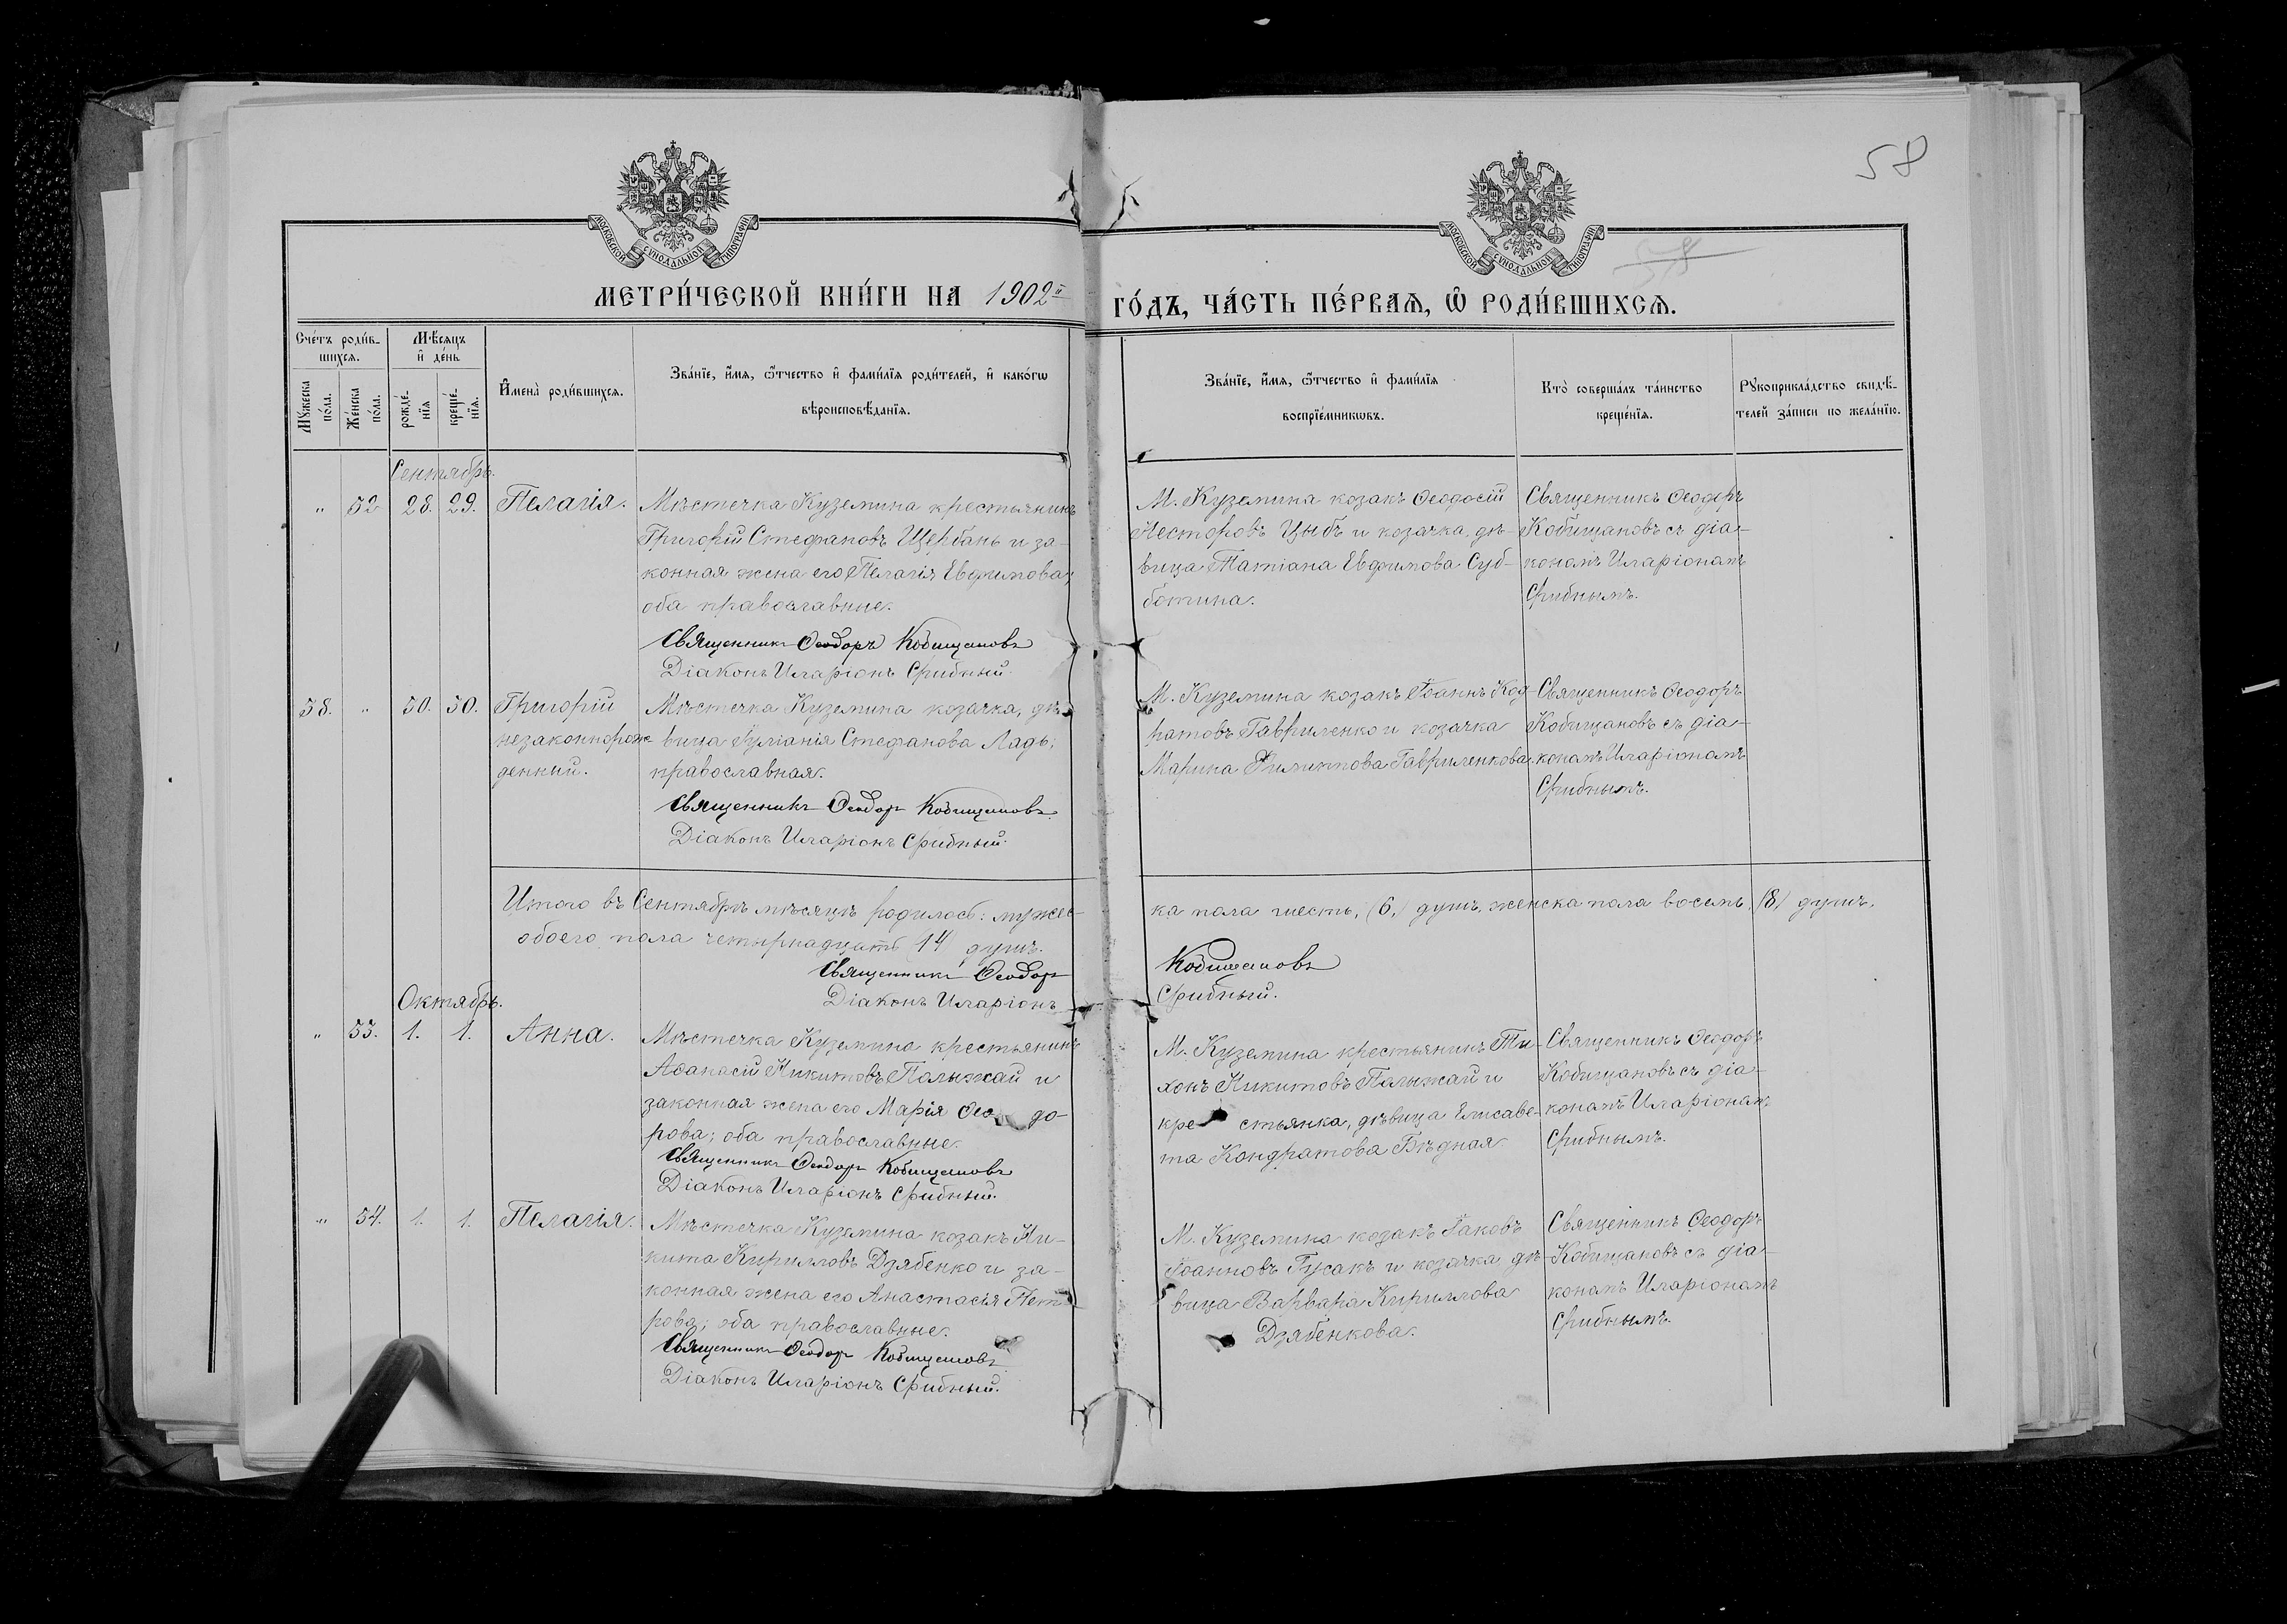 58
58
МОСКОВСКОЙ СѴНОДАЛЬНОЙ ТИПОГРАФІИ
МОСКОВСКОЙ СѴНОДАЛЬНОЙ ТИПОГРАФІИ
МЕТРИ́ЧЕСКОЙ КНИ́ГИ НА 1902й
ГО́ДЪ, ЧА́СТЬ ПЕ́РВАѦ, Ѽ РОДИ́ВШИХСѦ.
Сче́тъ роди́в-
шихсѧ.
Мꙋ́жеска по́ла.
Же́нска по́ла.
Мѣ́сѧцъ
и҆ де́нь
рожде́-
нїѧ
креще́-
нїѧ.
И҆мена̀ роди́вшихсѧ.
Зва́нїе, и҆́мѧ, ѻ҆́тчество и҆ фами́лїѧ роди́телей, и҆ како́гѡ
вѣроисповѣ́данїѧ.
Зва́нїе, и҆́мѧ, ѻ҆́тчество и҆ фами́лїѧ
воспрїе́мникѡвъ.
Кто̀ соверша́лъ та́инство
креще́нїѧ.
Рꙋкоприкла́дство свидѣ́-
телей за́писи по жела́нїю.
Сентябрь.
" 52 28. 29. Пелагія.
Мѣстечка Куземина крестьянинъ
Григорій Стефановъ Щербань и за-
конная жена его Пелагія Евфимова;
оба православные.
Священникъ Ѳеодоръ Кобищановъ
Діаконъ Иларіонъ Срибный.
М. Куземина козакъ Ѳеодосій
Несторовъ Цыбъ и козачка, дѣ-
вица Татіана Евфимова Суб-
ботина.
Священникъ Ѳеодоръ
Кобищановъ съ діа-
кономъ Иларіономъ
Срибнымъ.
38. " 30. 30. Григорій
незаконнорож-
денный.
Мѣстечка Куземина козачка, дѣ-
вица Іуліанія Стефанова Ладь;
православная.
Священникъ Ѳеодоръ Кобищановъ
Діаконъ Иларіонъ Срибный.
М. Куземина козакъ Іоаннъ Код-
ратовъ Гавриленко и козачка
Марина Гавриленкова.
Священникъ Ѳеодоръ
Кобищановъ съ діа-
кономъ Иларіономъ
Срибнымъ.
Итого въ Сентябрѣ мѣсяцѣ родилось: мужес-
ка пола шесть, (6,) душъ, женска пола восемь, (8,) душъ,
обоего пола четырнадцать (14) душъ.
Священникъ Ѳеодоръ Кобищановъ
Діаконъ Иларіонъ Срибный.
Октябрь.
" 53. 1. 1. Анна.
Мѣстечка Куземина крестьянинъ
Аѳанасій Никитовъ Палыжай и
законная жена его Марія Ѳео до-
рова; оба православные.
Священникъ Ѳеодоръ Кобищановъ
Діаконъ Иларіонъ Срибный.
М. Куземина крестьянинъ Ти-
хонъ Никитовъ Палыжай и
кре стьянка, дѣвица Елисаве-
та Кондратова Бѣдная.
Священникъ Ѳеодоръ
Кобищановъ съ діа-
кономъ Иларіономъ
Срибнымъ.
" 54. 1. 1. Пелагія.
Мѣстечка Куземина козакъ Ни-
кита Кирилловъ Дзябенко и за-
конная жена его Анастасія Пет-
рова; оба православные.
Священникъ Ѳеодоръ Кобищановъ
Діаконъ Иларіонъ Срибный.
М. Куземина козакъ Іаковъ
Іоанновъ Гусакъ и козачка дѣ-
вица Варвара Кириллова
Дзябенкова.
Священникъ Ѳеодоръ
Кобищановъ съ діа-
кономъ Иларіономъ
Срибнымъ.